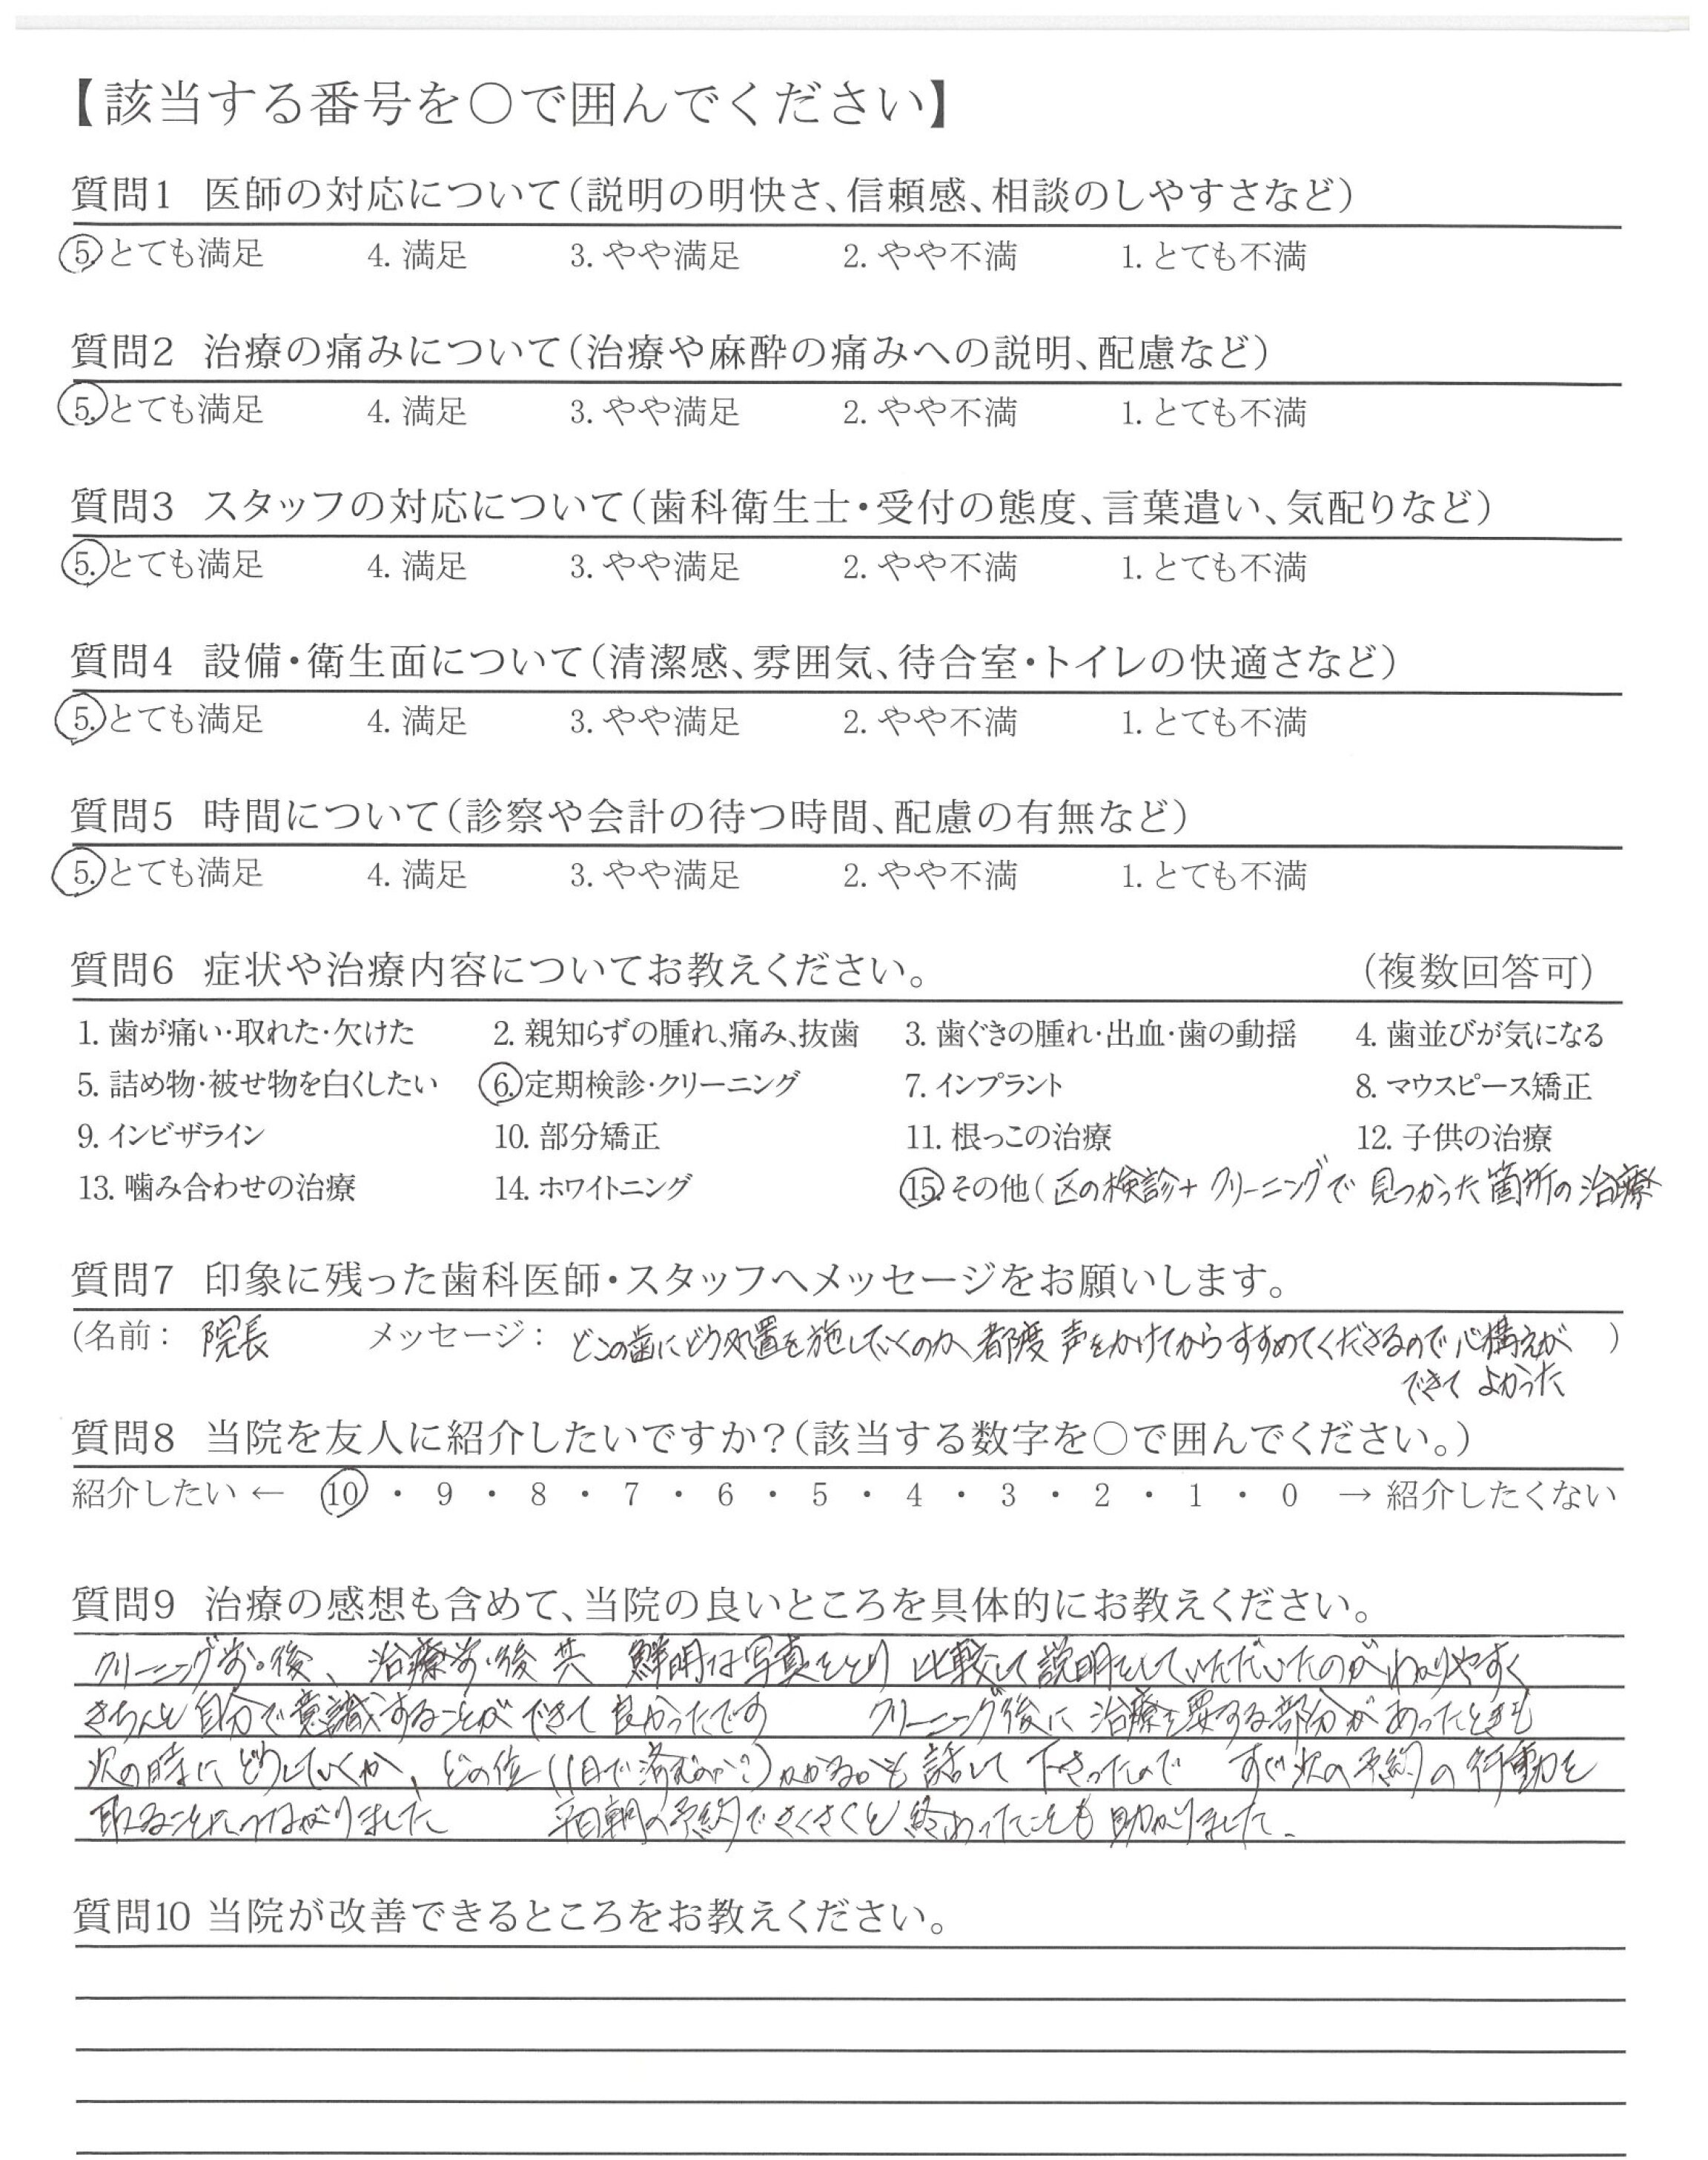 【該当する番号を○で囲んでください】
質問1 医師の対応について（説明の明快さ、信頼感、相談のしやすさなど）
5.とても満足 4. 満足 3. やや満足 2. やや不満 1. とても不満
質問2 治療の痛みについて（治療や麻酔の痛みへの説明、配慮など）
5.とても満足 4. 満足 3. やや満足 2. やや不満 1. とても不満
質問3 スタッフの対応について（歯科衛生士・受付の態度、言葉遣い、気配りなど）
5.とても満足 4. 満足 3. やや満足 2. やや不満 1. とても不満
質問4 設備・衛生面について（清潔感、雰囲気、待合室・トイレの快適さなど）
5.とても満足 4. 満足 3. やや満足 2. やや不満 1. とても不満
質問5 時間について（診察や会計の待つ時間、配慮の有無など）
5.とても満足 4. 満足 3. やや満足 2. やや不満 1. とても不満
質問6 症状や治療内容についてお教えください。 （複数回答可）
1. 歯が痛い・取れた・欠けた 2. 親知らずの腫れ、痛み、抜歯 3. 歯ぐきの腫れ・出血・歯の動揺 4. 歯並びが気になる
5. 詰め物・被せ物を白くしたい 6.定期検診・クリーニング 7. インプラント 8. マウスピース矯正
9. インビザライン 10. 部分矯正 11. 根っこの治療 12. 子供の治療
13. 噛み合わせの治療 14. ホワイトニング 15.その他（区の検診+クリーニングで見つかった箇所の治療
質問7 印象に残った歯科医師・スタッフへメッセージをお願いします。
（名前： 院長 メッセージ： どこの歯にどう処置を施していくのか、都度 声をかけてからすすめてくださるので心構えが ）
できて よかった
質問8 当院を友人に紹介したいですか？（該当する数字を○で囲んでください。）
紹介したい ← 10 ・ 9 ・ 8 ・ 7 ・ 6 ・ 5 ・ 4 ・ 3 ・ 2 ・ 1 ・ 0 → 紹介したくない
質問9 治療の感想も含めて、当院の良いところを具体的にお教えください。
クリーニング前・後、治療前・後 共 鮮明な写真をとり 比較して説明をしていただいたのがわかりやすく
きちんと自分で意識することができて 良かったです クリーニング後に 治療を要する部分があったときも
次の時に どうしていくか、どの位（1日で済むのか？）かかるかも 話して 下さったので すぐ次の予約の行動を
取ることにつながりました 平日朝の予約でさくさくと終わったことも 助かりました。
質問10 当院が改善できるところをお教えください。